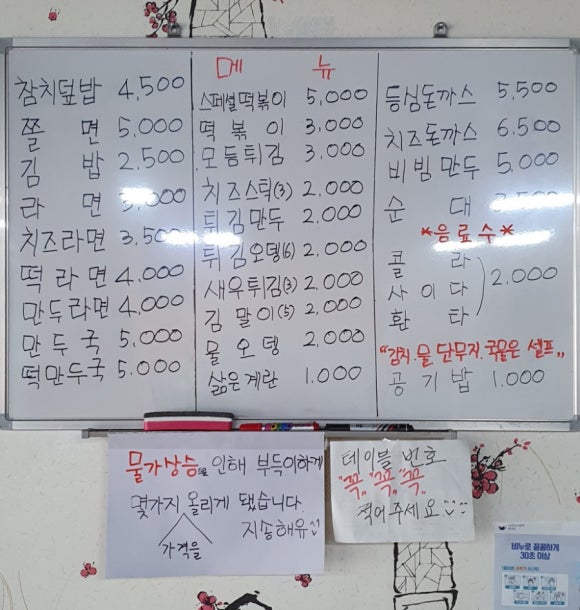 메 뉴
참치덮밥 4,500
쫄 면 5,000
김 밥 2,500
라 면 3,000
치즈라면 3,500
떡 라 면 4,000
만두라면 4,000
만 두 국 5,000
떡만두국 5.000
스페셜떡볶이 5,000
떡 볶 이 3,000
모듬튀김 3,000
치즈스틱(3) 2,000
튀김만두 2,000
튀김오뎅(6) 2,000
새우튀김(3) 2,000
김 말 이(5) 2,000
물 오 뎅 2,000
삶은계란 1.000
등심돈까스 5,500
치즈돈까스 6,500
비빔만두 5,000
순 대
*음료수*
콜 라
사 이 다 2,000
환 타
"김치.물 단무지.국물은 셀프"
공 기 밥 1.000
물가상승으로 인해 부득이하게
몇가지 올리게 됐습니다.
가격을
지송해유
테이블 번호
"꼭" "꼭" "꼭"
적어주세요
비누로 꼼꼼하게
30초 이상